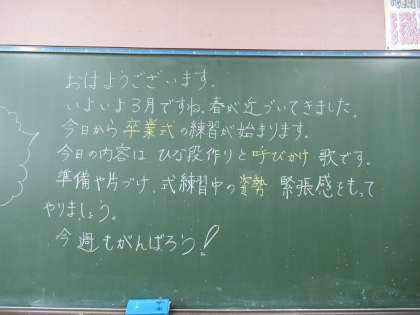 おはようございます。
いよいよ3月ですね。春が近づいてきました。
今日から卒業式の練習が始まります。
今日の内容は ひな段作りと呼びかけ 歌です。
準備や片づけ、式練習中の姿勢 緊張感をもって
やりましょう。
今週もがんばろう!